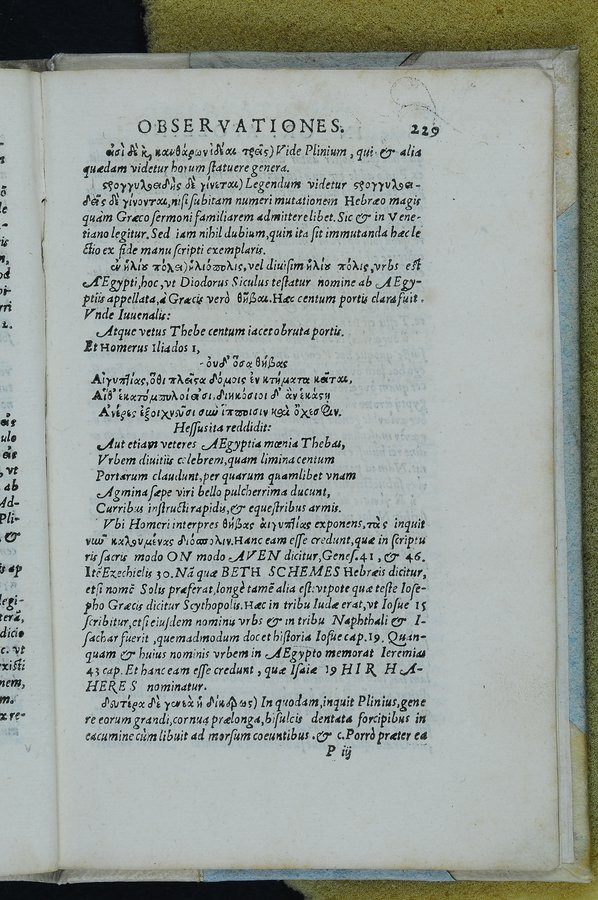 OBSERVATIONES. 229
εἰσὶ δὲ κỳ κανθάρων ἰδέαι τρεῖς) Vide Plinium, qui & alia
quædam videtur horum statuere genera.
στρογγυλοειδὴς δὲ γίνεται) Legendum videtur στρογγυλοει-
δεῖς δὲ γίνονται, nisi subitam numeri mutationem Hebræo magis
quàm Græco sermoni familiarem admittere libet. Sic & in Vene-
tiano legitur. Sed iam nihil dubium, quin ita sit immutanda hæc le
ctio ex fide manu scripti exemplaris.
ἐν ἡλίου πόλει) ἡλιόπολις, vel diuisim ἡλίου πόλις, vrbs est
Ægypti, hoc, vt Diodorus Siculus testatur nomine ab Ægy-
ptiis appellata, à Græcis verò θῆβαι. Hæc centum portis clara fuit.
Vnde Iuuenalis:
Atque vetus Thebe centum iacet obruta portis.
Et Homerus Iliados 1,
- οὐδ' ὅσα θήβας
Αἰγυπτίας, ὅθι πλεῖστα δόμοις ἐν κτήματα κεῖται,
Αἵθ' ἑκατόμπυλοί εἰσι, διηκόσιοι δ' ἀν' ἑκάστην
Ἀνέρες ἐξοιχνεῦσι σὺν ἵπποισιν καὶ ὄχεσφιν.
Hessus ita reddidit:
Aut etiam veteres Ægyptia mœnia Thebas,
Vrbem diuitiis celebrem, quam limina centum
Portarum claudunt, per quarum quamlibet vnam
Agmina sæpe viri bello pulcherrima ducunt,
Curribus instructi rapidis, & equestribus armis.
Vbi Homeri interpres θήβας αἰγυπτίας exponens, τὰς inquit
νῦν καλουμένας διόπολιν. Hanc eam esse credunt, quæ in scriptu
ris sacris modo ON modo AVEN dicitur, Genes. 41, & 46.
Itē Ezechielis 30. Nā quæ BETH SCHEMES Hebræis dicitur,
etsi nomē Solis præferat, longè tamē alia est: vtpote quæ teste Iose-
pho Græcis dicitur Scythopolis. Hæc in tribu Iudæ erat, vt Iosue 15
scribitur, etsi eiusdem nominis vrbs & in tribu Naphthali & I-
sachar fuerit, quemadmodum docet historia Iosue cap. 19. Quan-
quam & huius nominis vrbem in Ægypto memorat Ieremias
43 cap. Et hanc eam esse credunt, quæ Isaiæ 19 HIR HA-
HERES nominatur.
δευτέρα δὲ γενεὰ ἡ δίκερως) In quodam, inquit Plinius, gene
re eorum grandi, cornua prælonga, bisulcis dentata forcipibus in
cacumine cùm libuit ad morsum coeuntibus. & c. Porrò præter ea
P iij